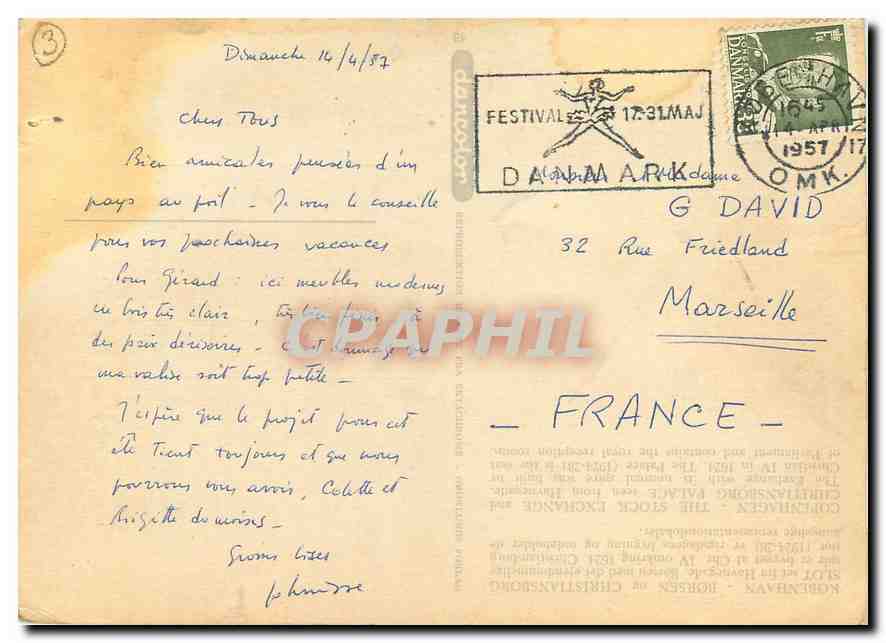 3
Dimanche 14/4/57
Chers Tous
Bien amicales pensées d'un
pays au poil - Je vous le conseille
pour vos prochaines vacances
Pour Gérard : ici meubles modernes
en bois très clair, très bien finis à
des prix dérisoires - c'est dommage que
ma valise soit trop petite -
J'espère que le projet pour cet
été tient toujours et que nous
pourrons vous avoir, Colette et
Brigitte du moins -
Grosses bises
danexlon
FESTIVAL 17.-31.MAJ
DANMARK
DANMARK
KØBENHAVN
16 45
14 APRI
1957 17
OMK.
Monsieur Madame
G DAVID
32 Rue Friedland
Marseille
- FRANCE -
CPAPHIL
KØBENHAVN - BØRSEN og CHRISTIANSBORG
SLOT set fra Havnegade. Børsen med det ejendommelige
spir er bygget af Chr. IV omkring 1624. Christiansborg
(1924-28) er rigsdagens bygning og indeholder de
kongelige repræsentationslokaler.
COPENHAGEN - THE STOCK EXCHANGE and
CHRISTIANSBORG PALACE seen from Havnegade.
The Exchange with its unusual spire was built by
Christian IV in 1624. The Palace (1924-28) is the seat
of Parliament and contains the royal reception rooms.